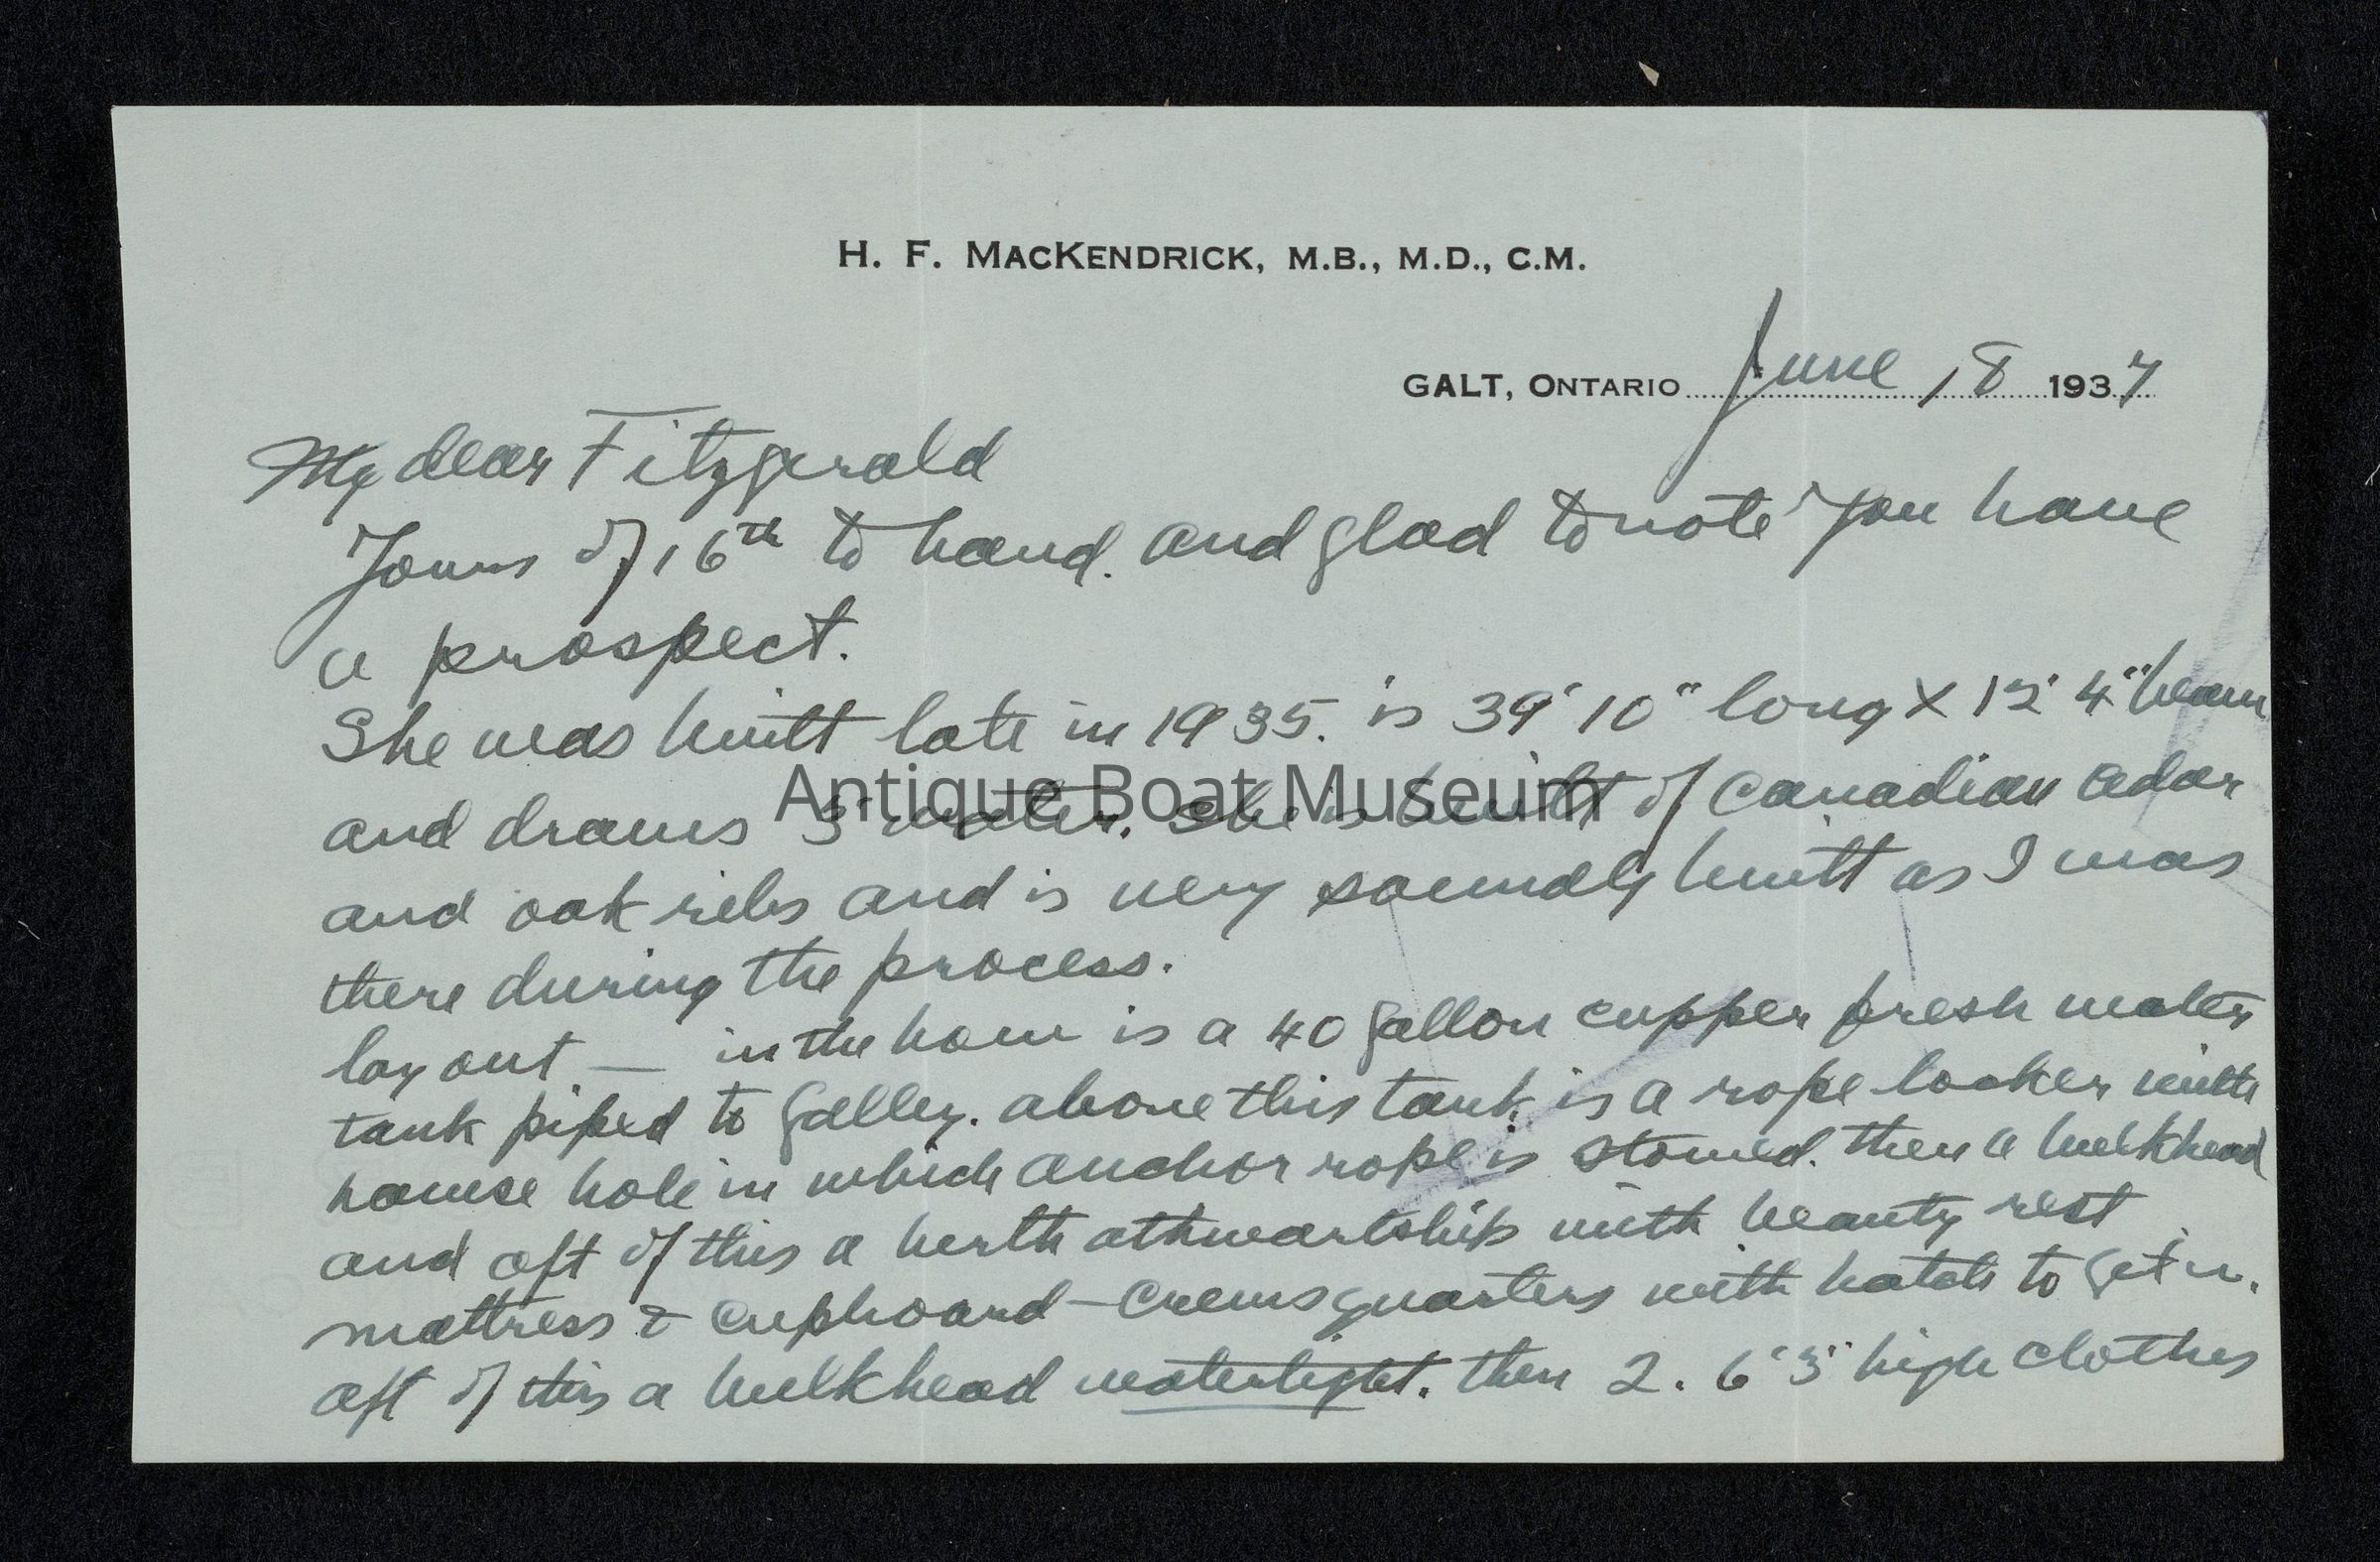 H. F. MACKENDRICK, M.B., M.D., C.M.
GALT, ONTARIO June 18 1937
My dear Fitzgerald
Yours of 16th to hand. and glad to note you have
a prospect.
She was built late in 1935. is 39' 10" long X 12' 4" beam
and draws 3' water. She is built of Canadian cedar
and oak ribs and is very soundly built as I was
there during the process.
lay out — in the bow is a 40 gallon cupper fresh water
tank piped to galley. above this tank is a rope locker with
hawse hole in which anchor rope is stowed. then a bulkhead
and aft of this a berth athwartship with beauty rest
mattress & cupboard - crews quarters with hatch to get in.
aft of this a bulkhead watertight. then 2. 6' 3" high clothes
Antique Boat Museum